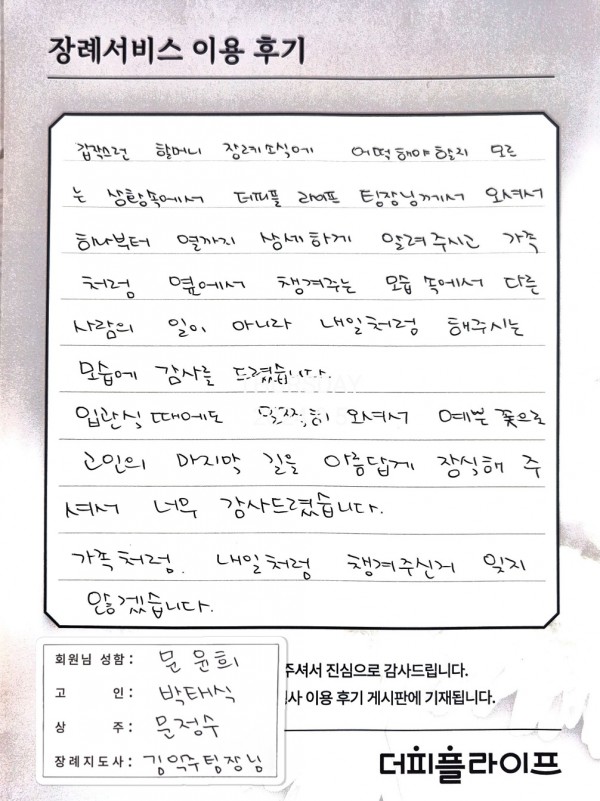 장례서비스 이용 후기
갑작스런 할머니 장례소식에 어떡해야 할지 모르
는 상황속에서 더피플 라이프 팀장님께서 오셔서
하나부터 열까지 상세하게 알려주시고 가족
처럼 옆에서 챙겨주는 모습 속에서 다른
사람의 일이 아니라 내일처럼 해주시는
모습에 감사를 드렸습니다.
입관식 때에도 일찍히 오셔서 예쁜 꽃으로
고인의 마지막 길을 아름답게 장식해 주
셔서 너무 감사드렸습니다.
가족처럼. 내일처럼 챙겨주신거 잊지
않겠습니다.
회원님 성함 : 문윤희
고 인 : 박태식
상 주 : 문정수
장례지도사 : 김익수팀장님
주셔서 진심으로 감사드립니다.
사 이용 후기 게시판에 기재됩니다.
더피플라이프